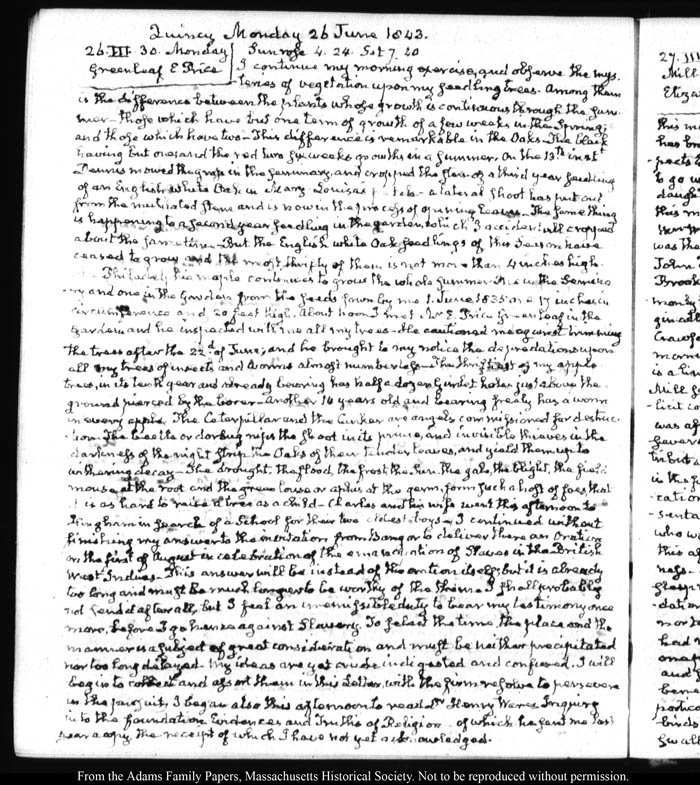 Quincy Monday 26 June 1843.
26. III. 30. Monday Sunrose 4. 24. Set 7. 20
Greenleaf E Price I continue my morning exercise, and observe the mys-
teries of vegetation upon my seedling trees. Among them
is the difference between the plants whose growth is continuous through the Sum-
mer—those which have but one term of growth of a few weeks in the Spring;
and those which have two—This difference is remarkable in the Oaks—The black
having but one and the red two six weeks growths in a Summer. On the 13th inst
Dennis mowed the grass in the and cropped the stem of a third year seedling
of an English white Oak in Mary Louisa's a lateral shoot has put out
from the mutilated stem and is now in the process of opening leaves—The same thing
is happening to a second year seedling in the garden, which I accidentally cropped
about the same time—But the English white Oak seedlings of this Season have
ceased to grow and the most thrifty of them is not more than 4 inches high.
maple continues to grow the whole summer in the
and one in the Garden from the seeds sown by me 1. June 1835 are 17 inches in
circumference and 20 feet high. About noon I met Mr E. Price Greenleaf in the
Garden and he inspected with me all my trees—He cautioned me against trimming
the trees after the 22d of June; and he brought to my notice the depredations upon
all my trees of insects and worms almost numberless—The thriftiest of my apple
trees, in its tenth year and already bearing has half a dozen holes just above the
ground pierced by the borer—Another 14 years old and bearing freely has a worm
in every apple. The Caterpillar and the Canker are angels commissioned for destruc-
tion. The beetle or dorbug nips the shoot in its prime, and invisible thieves in the
darkness of the night strip the Oaks of their tender leaves, and yield them up to
withering decay—The drought, the flood, the frost, the Sun, the gale, the blight, the field
mouse at the root and the green louse or aphis at the germ, form such a host of foes that
it is as hard to raise a tree as a child—Charles and his wife went this afternoon to
Hingham in search of a School for their two eldest boys—I continued without
finishing my answer to the invitation from Bangor to deliver there an Oration
on the first of August in celebration of the emancipation of Slaves in the British
West Indies—This answer will be instead of the oration itself; but it is already
too long and must be much longer to be worthy of the theme I shall probably
not send it after all, but I feel an duty to bear my testimony once
more, before I go hence against Slavery. To select the time, the place and the
manner is a subject of great consideration and must be neither precipitated
nor too long delayed—My ideas are yet crude indigested and confused. I will
begin to collect and assort them in this Letter, with the firm resolve to persevere
in the pursuit. I began also this afternoon to read Dr Henry Wares Inquiry
into the foundation Evidences and Truths of Religion—of which he sent me last
year a copy, the receipt of which I have not yet acknowledged.
27. III
Mill
Eliza
this m
has br
to go w
daugh
this m
was the
John
Brook
Mill
was af
in the
cation
who w
this af
ness
had
and
From the Adams Family Papers, Massachusetts Historical Society. Not to be reproduced without permission.